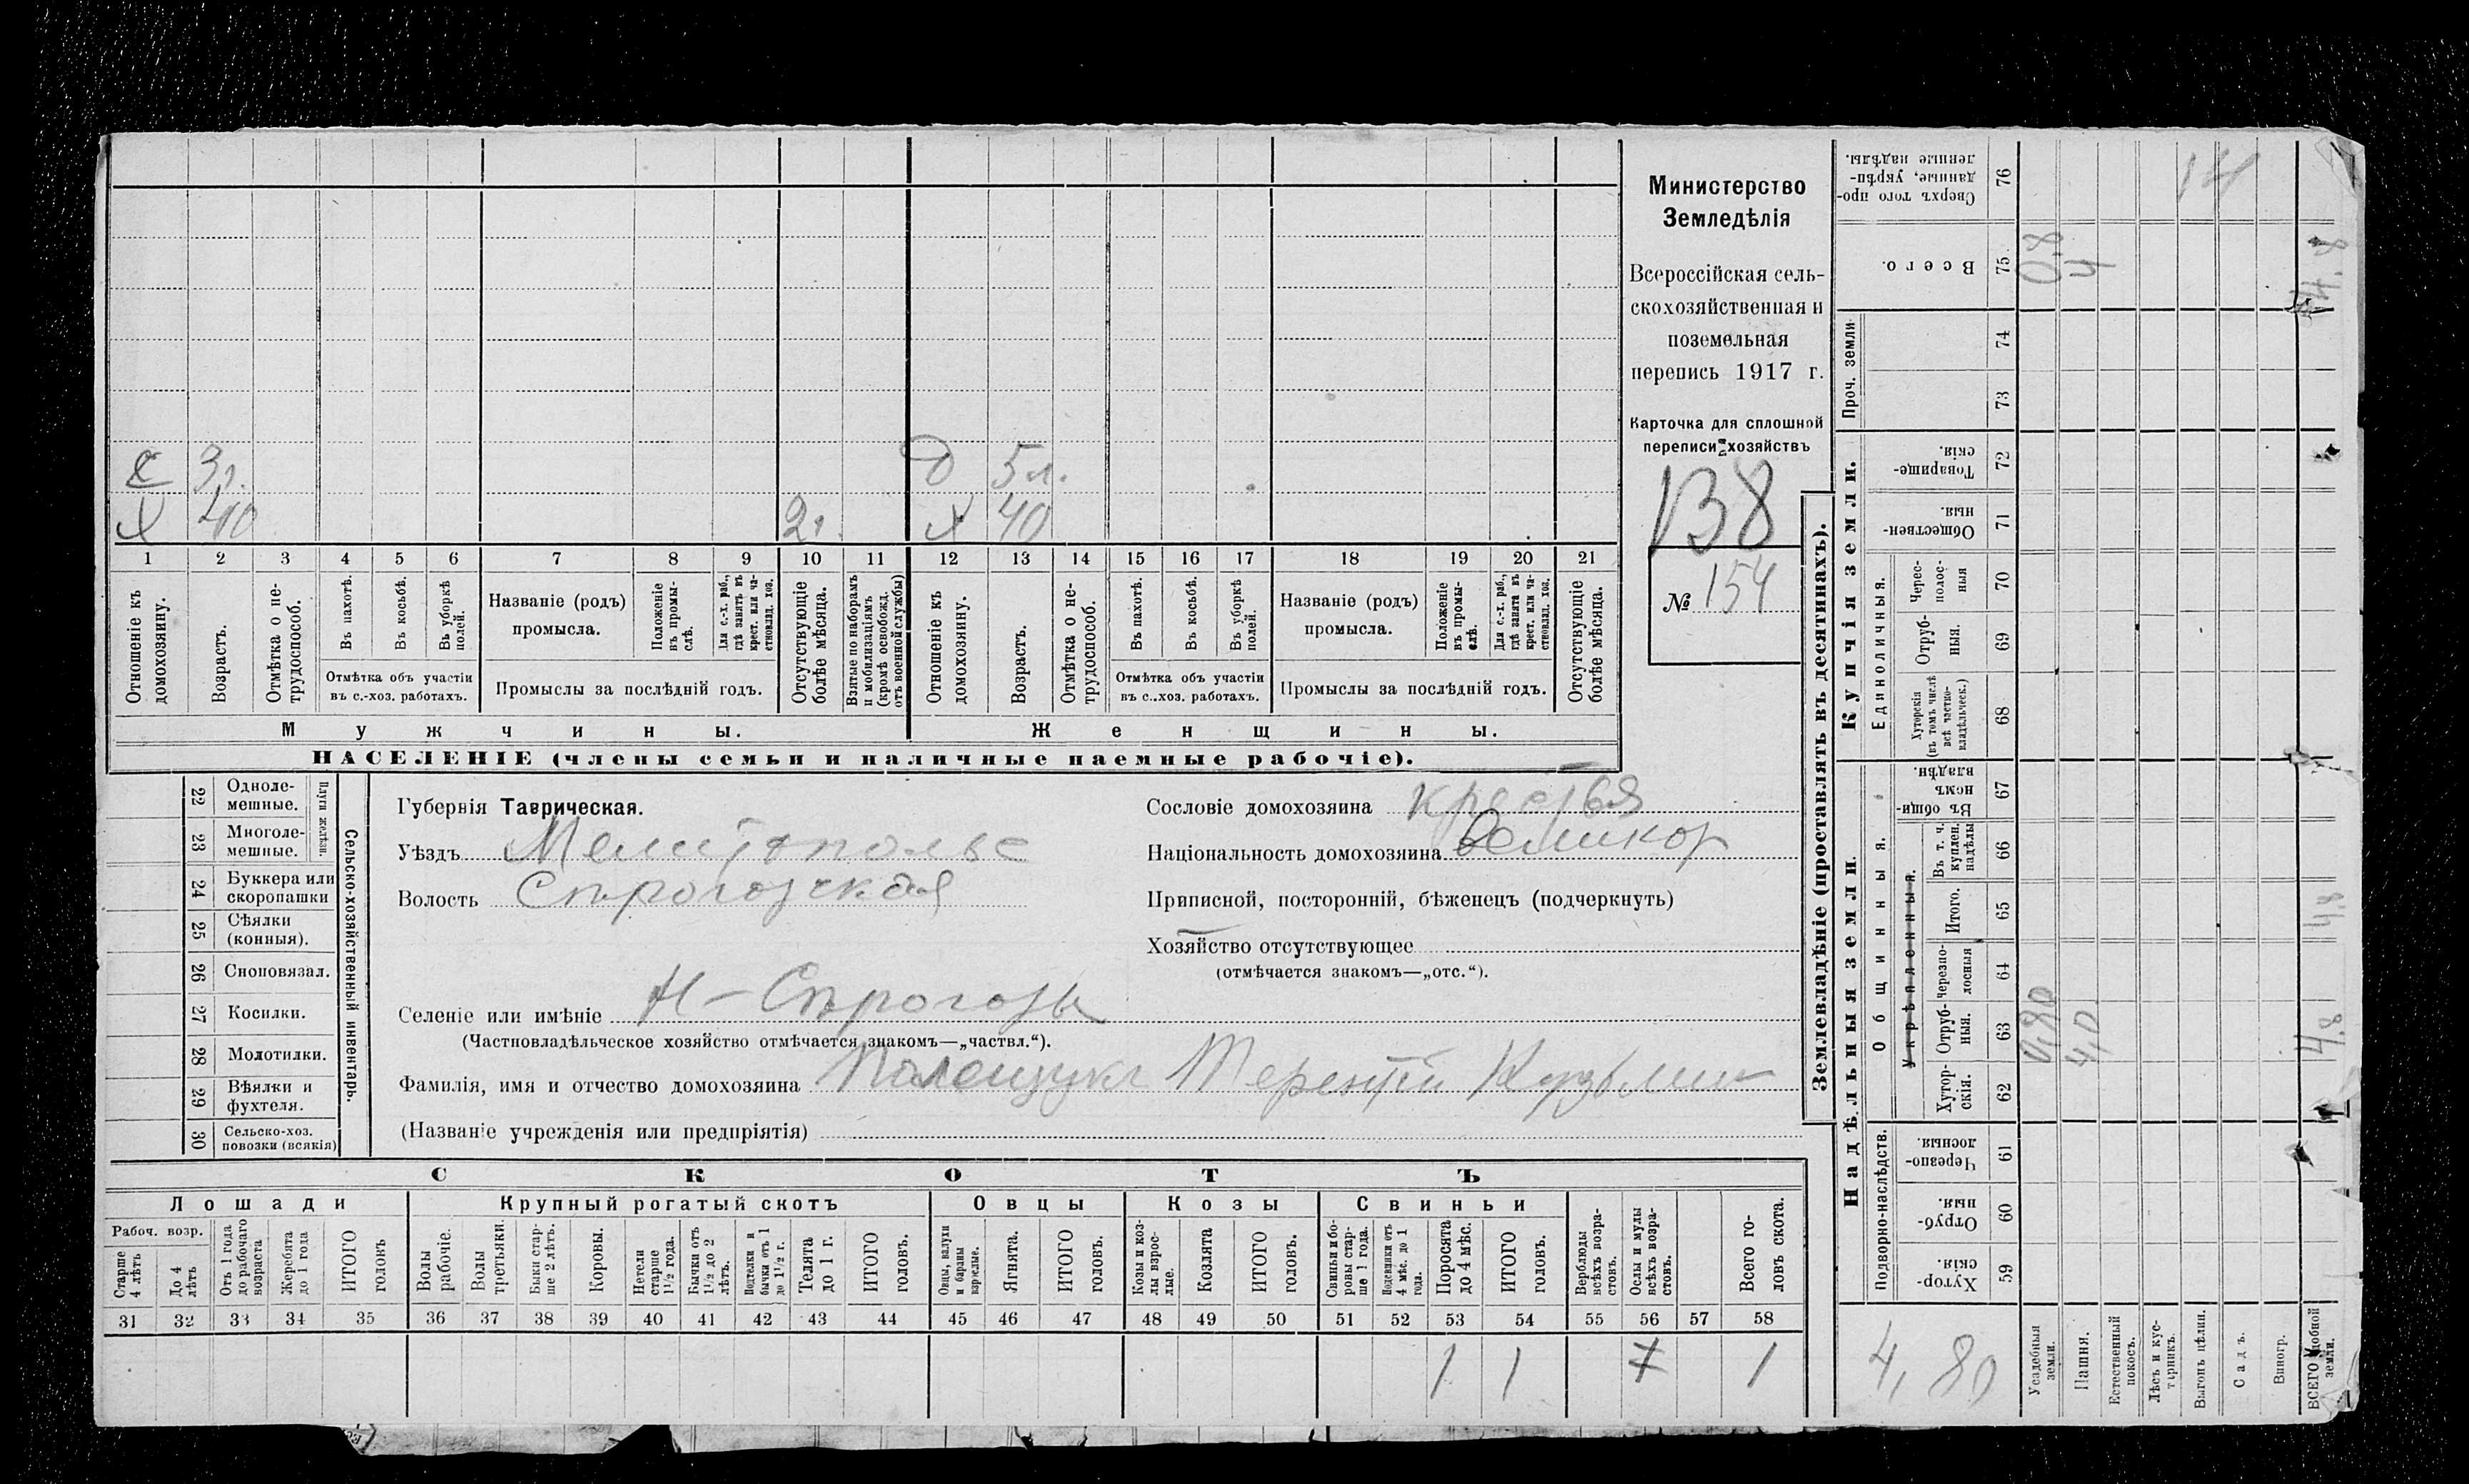 с 3г. д 5 л.
х 40 2г. х 40
1 2 3 4 5 6 7 8 9 10 11 12 13 14 15 16 17 18 19 20 21
Отношеніе къ домохозяину.
Возрастъ.
Отмѣтка о не-
трудоспособ.
Въ пахотѣ.
Въ косьбѣ.
Въ уборкѣ полей.
Отмѣтка объ участіи
въ с.-хоз. работахъ.
Названіе (родъ)
промысла.
Положеніе
въ промы-
слѣ.
Для с.-х. раб.,
гдѣ занятъ въ
крест. или ча-
стновлд. хоз.
Промыслы за послѣдній годъ.
Отсутствующіе
болѣе мѣсяца.
Взятые по наборамъ
и мобилизаціямъ
(кромѣ освобожд.
отъ военной службы)
Отношеніе къ
домохозяину.
Возрастъ.
Отмѣтка о не-
трудоспособ.
Въ пахотѣ.
Въ косьбѣ.
Въ уборкѣ
полей.
Отмѣтка объ участіи
въ с..хоз. работахъ.
Названіе (родъ)
промысла.
Положеніе
въ промы-
слѣ.
Для с.-х. раб.,
гдѣ занята въ
крест. или ча-
стновлд. хоз.
Промыслы за послѣдній годъ.
Отсутствующіе
болѣе мѣсяца.
Мужчины.
Женщины.
НАСЕЛЕНІЕ (члены семьи и наличные наемные рабочіе).
Министерство
Земледѣлія
Всероссійская сель-
скохозяйственная и
поземельная
перепись 1917 г.
Карточка для сплошной
переписи хозяйствъ
138
№ 154
22 Одноле-
мешные.
23 Многоле-
мешные.
Плуги желѣзн.
24 Буккера или
скоропашки
25 Сѣялки
(конныя).
26 Сноповязал.
27 Косилки.
28 Молотилки.
29 Вѣялки и
фухтеля.
30 Сельско-хоз.
повозки (всякія)
Сельско-хозяйственный инвентарь.
Губернія Таврическая.
Уѣздъ Мелитопольс
Волость Спрогозская
Селеніе или имѣніе Н-Спрогозы
(Частновладѣльческое хозяйство отмѣчается знакомъ—„частвл.“).
Фамилія, имя и отчество домохозяина Полещукъ Терентій Кузьмич
(Названіе учрежденія или предпріятія)
Сословіе домохозяина крестья
Національность домохозяина Великор
Приписной, посторонній, бѣженецъ (подчеркнуть)
Хозяйство отсутствующее
(отмѣчается знакомъ—„отс.“).
СКОТЪ
Лошади
Крупный рогатый скотъ
Овцы
Козы
Свиньи
Рабоч. возр.
Старше
4 лѣтъ
До 4
лѣтъ
Отъ 1 года
до рабочаго
возраста
Жеребята
до 1 года
ИТОГО
головъ
Волы
рабочіе.
Волы
третьяки.
Быки стар-
ше 2 лѣтъ.
Коровы.
Нетели
старше
1½ года.
Бычки отъ
1½ до 2
лѣтъ.
Подтелки и
бычки отъ 1
до 1½ г.
Телята
до 1 г.
ИТОГО
головъ.
Овцы, валухи
и бараны
взрослые.
Ягнята.
ИТОГО
головъ.
Козы и коз-
лы взрос-
лые.
Козлята
ИТОГО
головъ.
Свиньи и бо-
ровы стар-
ше 1 года.
Подсвинки отъ
4 мѣс. до 1
года.
Поросята
до 4 мѣс.
ИТОГО
головъ.
Верблюды
всѣхъ возра-
стовъ.
Ослы и мулы
всѣхъ возра-
стовъ.
Всего го-
ловъ скота.
31 32 33 34 35 36 37 38 39 40 41 42 43 44 45 46 47 48 49 50 51 52 53 54 55 56 57 58
1 1 1
Землевладѣніе (проставлять въ десятинахъ).
Надѣльныя земли.
Купчія земли.
Проч. земли
Подворно-наслѣдств.
Общинныя.
Укрѣпленныя.
Единоличныя.
Сверхъ того про-
данные, укрѣп-
ленные надѣлы.
76
14
Всего.
75
0,8
4
4,8
74
73
Товарище-
скія.
72
Обществен-
ныя.
71
Черес-
полос-
ныя
70
Отруб-
ныя.
69
Хуторскія
(въ томъ числѣ
всѣ частно-
владѣльческ.)
68
Въ общи-
номъ
владѣн.
67
Въ т. ч.
куплен.
надѣлы
66
Итого.
65
4,8
Черезпо-
лосныя
64
Отруб-
ныя.
63
0,80
4,0
4,8
Хутор-
скія.
62
Черезпо-
лосныя
61
Отруб-
ныя.
60
Хутор-
скія.
59
4,80
Усадебныя
земли.
Пашня.
Естественный
покосъ.
Лѣсъ и кус-
тарникъ.
Выгонъ цѣлин.
Садъ.
Виногр.
ВСЕГО удобной
земли.